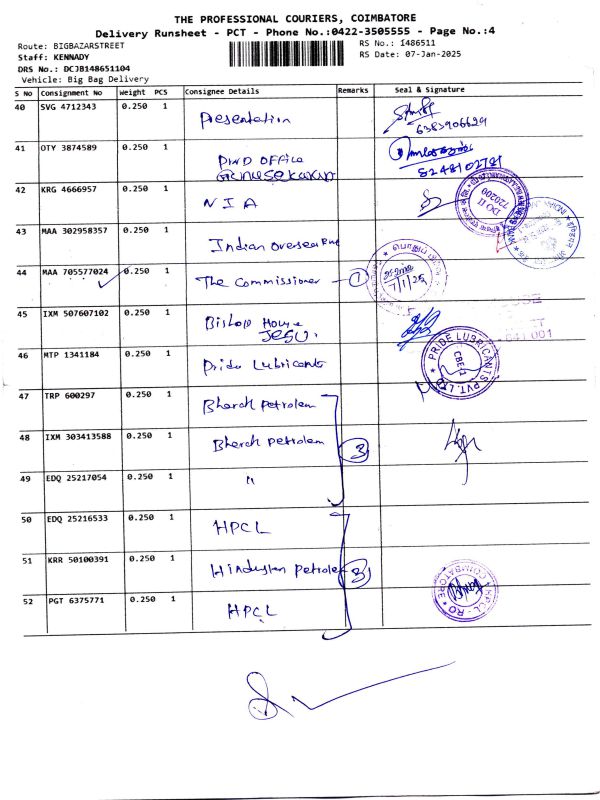 THE PROFESSIONAL COURIERS, COIMBATORE
Delivery Runsheet - PCT - Phone No.:0422-3505555 - Page No.:4
Route: BIGBAZARSTREET
RS No.: 1486511
Staff: KENNADY
RS Date: 07-Jan-2025
DRS No.: DCJB148651104
Vehicle: Big Bag Delivery
S No Consignment No Weight PCS Consignee Details Remarks Seal & Signature
40 SVG 4712343 0.250 1 Presentation
6383906629
41 OTY 3874589 0.250 1 PWD OFFICE
8248102781
42 KRG 4666957 0.250 1 NIA
DO II 720200
43 MAA 302958357 0.250 1 Indian Overseas
44 MAA 705577024 0.250 1 The Commissioner 1
7/1/25
45 IXM 507607102 0.250 1 Bishop House
JESU.
46 MTP 1341184 0.250 1 Pride Lubricants
PRIDE LUBRICANTS PVT. LTD
CBE-1
47 TRP 600297 0.250 1 Bharath Petroleum
48 IXM 303413588 0.250 1 Bharath Petroleum 3
49 EDQ 25217054 0.250 1 "
50 EDQ 25216533 0.250 1 HPCL
51 KRR 50100391 0.250 1 Hindustan Petrole 3
52 PGT 6375771 0.250 1 HPCL
HPCL - RO COIMBATORE